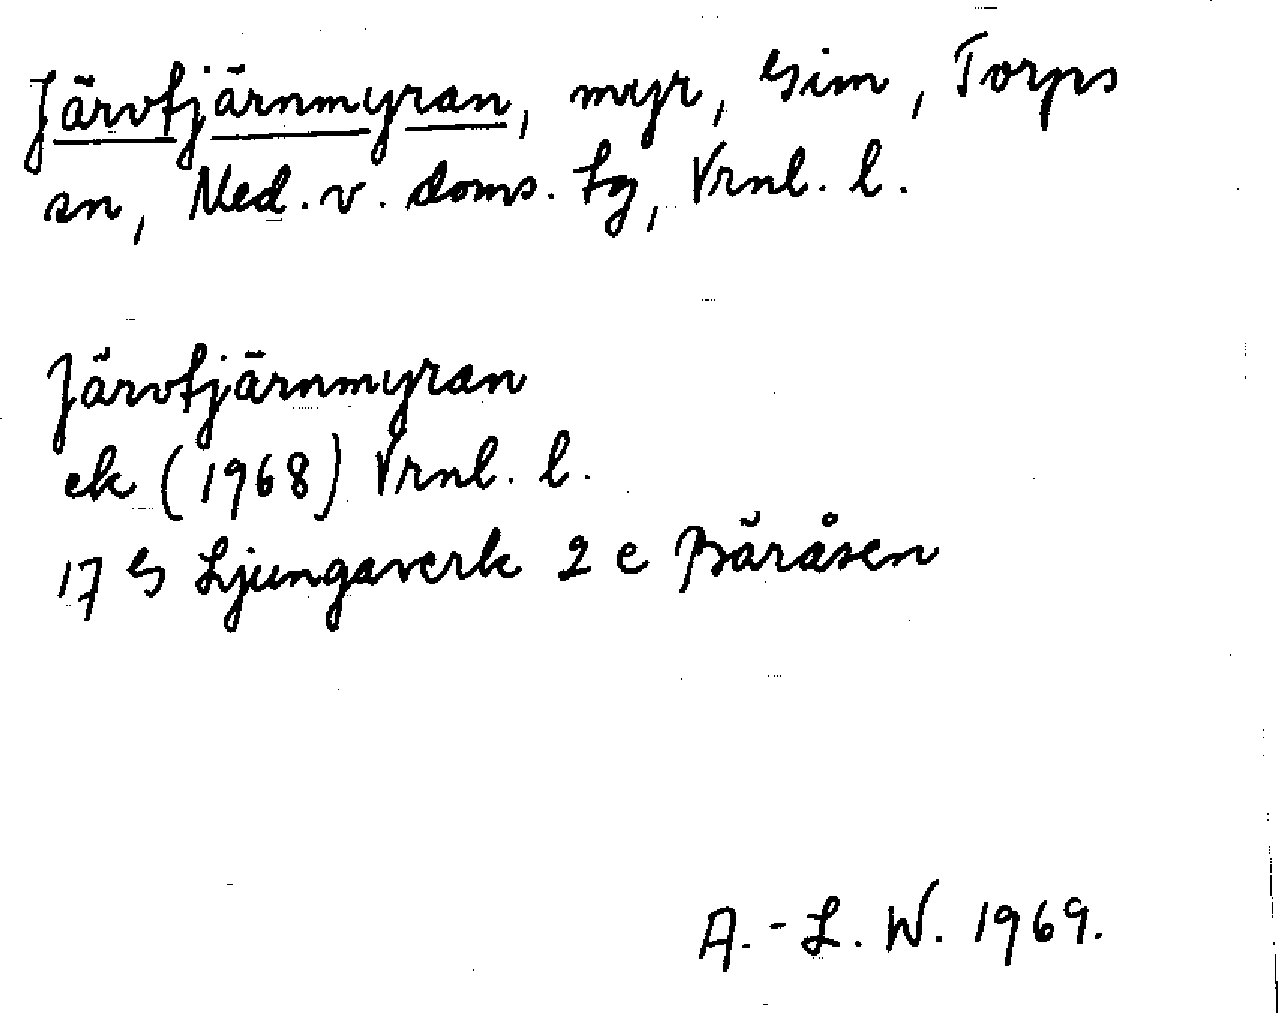 Järvtjärnmyran, myr, Gim, Torps
sn, Med. v. doms. tg, Vrnl. l.
Järvtjärnmyran
ek (1968) Vrnl. l.
17 G Ljungaverk 2 e Bäråsen
A.-L. W. 1969.